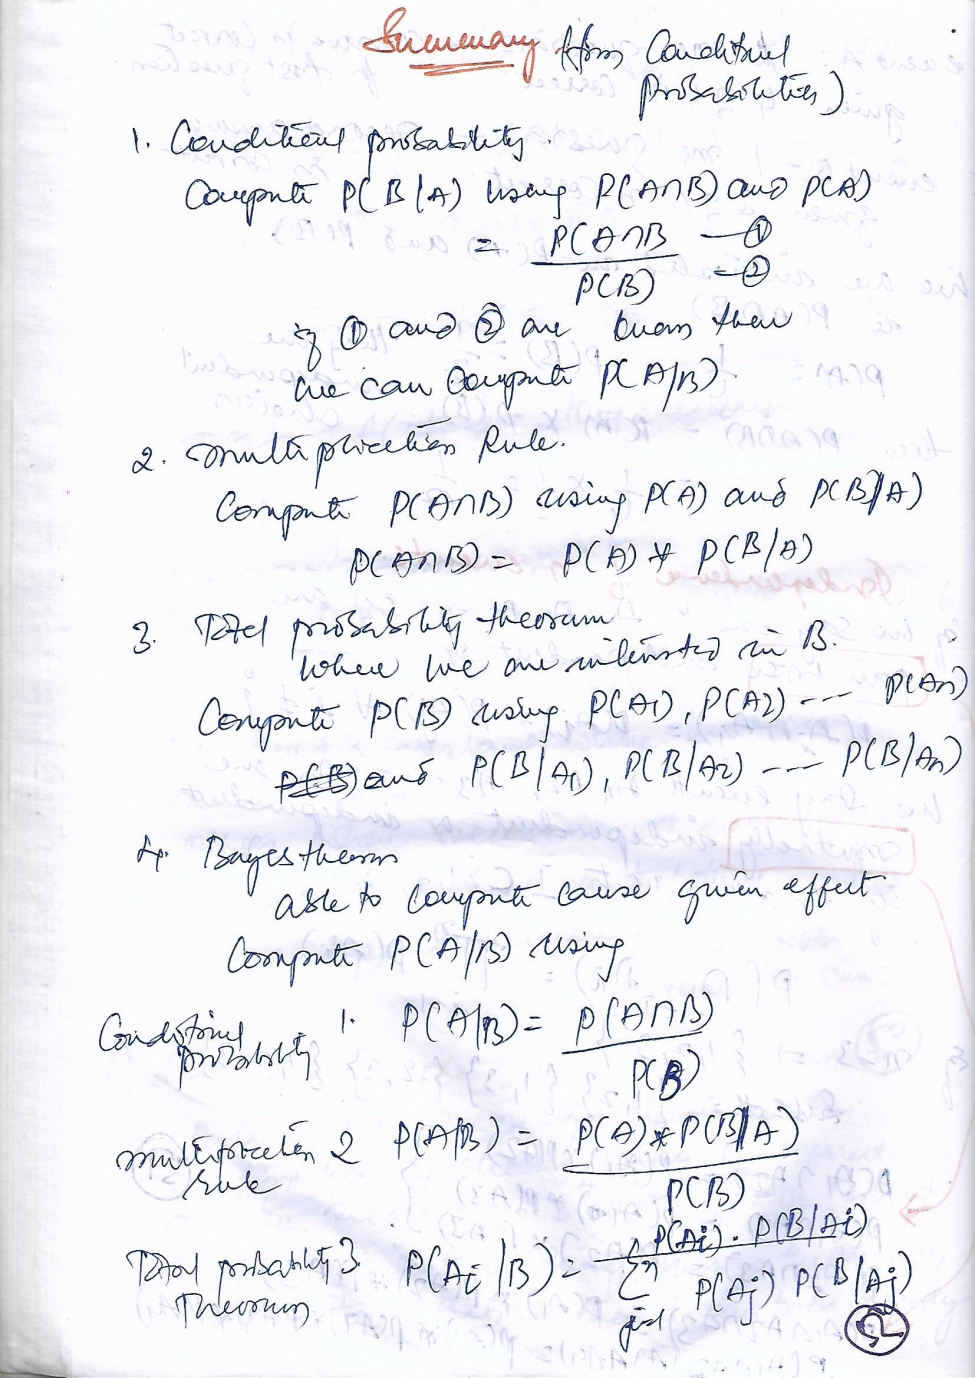 Summary (from Conditional
Probabilities)
1. Conditional probability.
Compute P(B/A) using P(A∩B) and P(A)
= P(A∩B — ①
P(B) — ②
if ① and ② are known then
we can compute P(A/B).
2. multiplication Rule.
Compute P(A∩B) using P(A) and P(B/A)
P(A∩B) = P(A) * P(B/A)
3. Total probability theorem
where we are interested in B.
Compute P(B) using P(A1), P(A2) --- P(An)
and P(B/A1), P(B/A2) --- P(B/An)
4. Bayes theorem
able to compute cause given effect
Compute P(A/B) using
Conditional probability 1. P(A/B) = P(A∩B)
P(B)
multiplication rule 2 P(A/B) = P(A)*P(B/A)
P(B)
Total probability Theorem 3 P(Ai/B) = P(Ai) . P(B/Ai)
∑ n j=1 P(Aj) P(B/Aj)